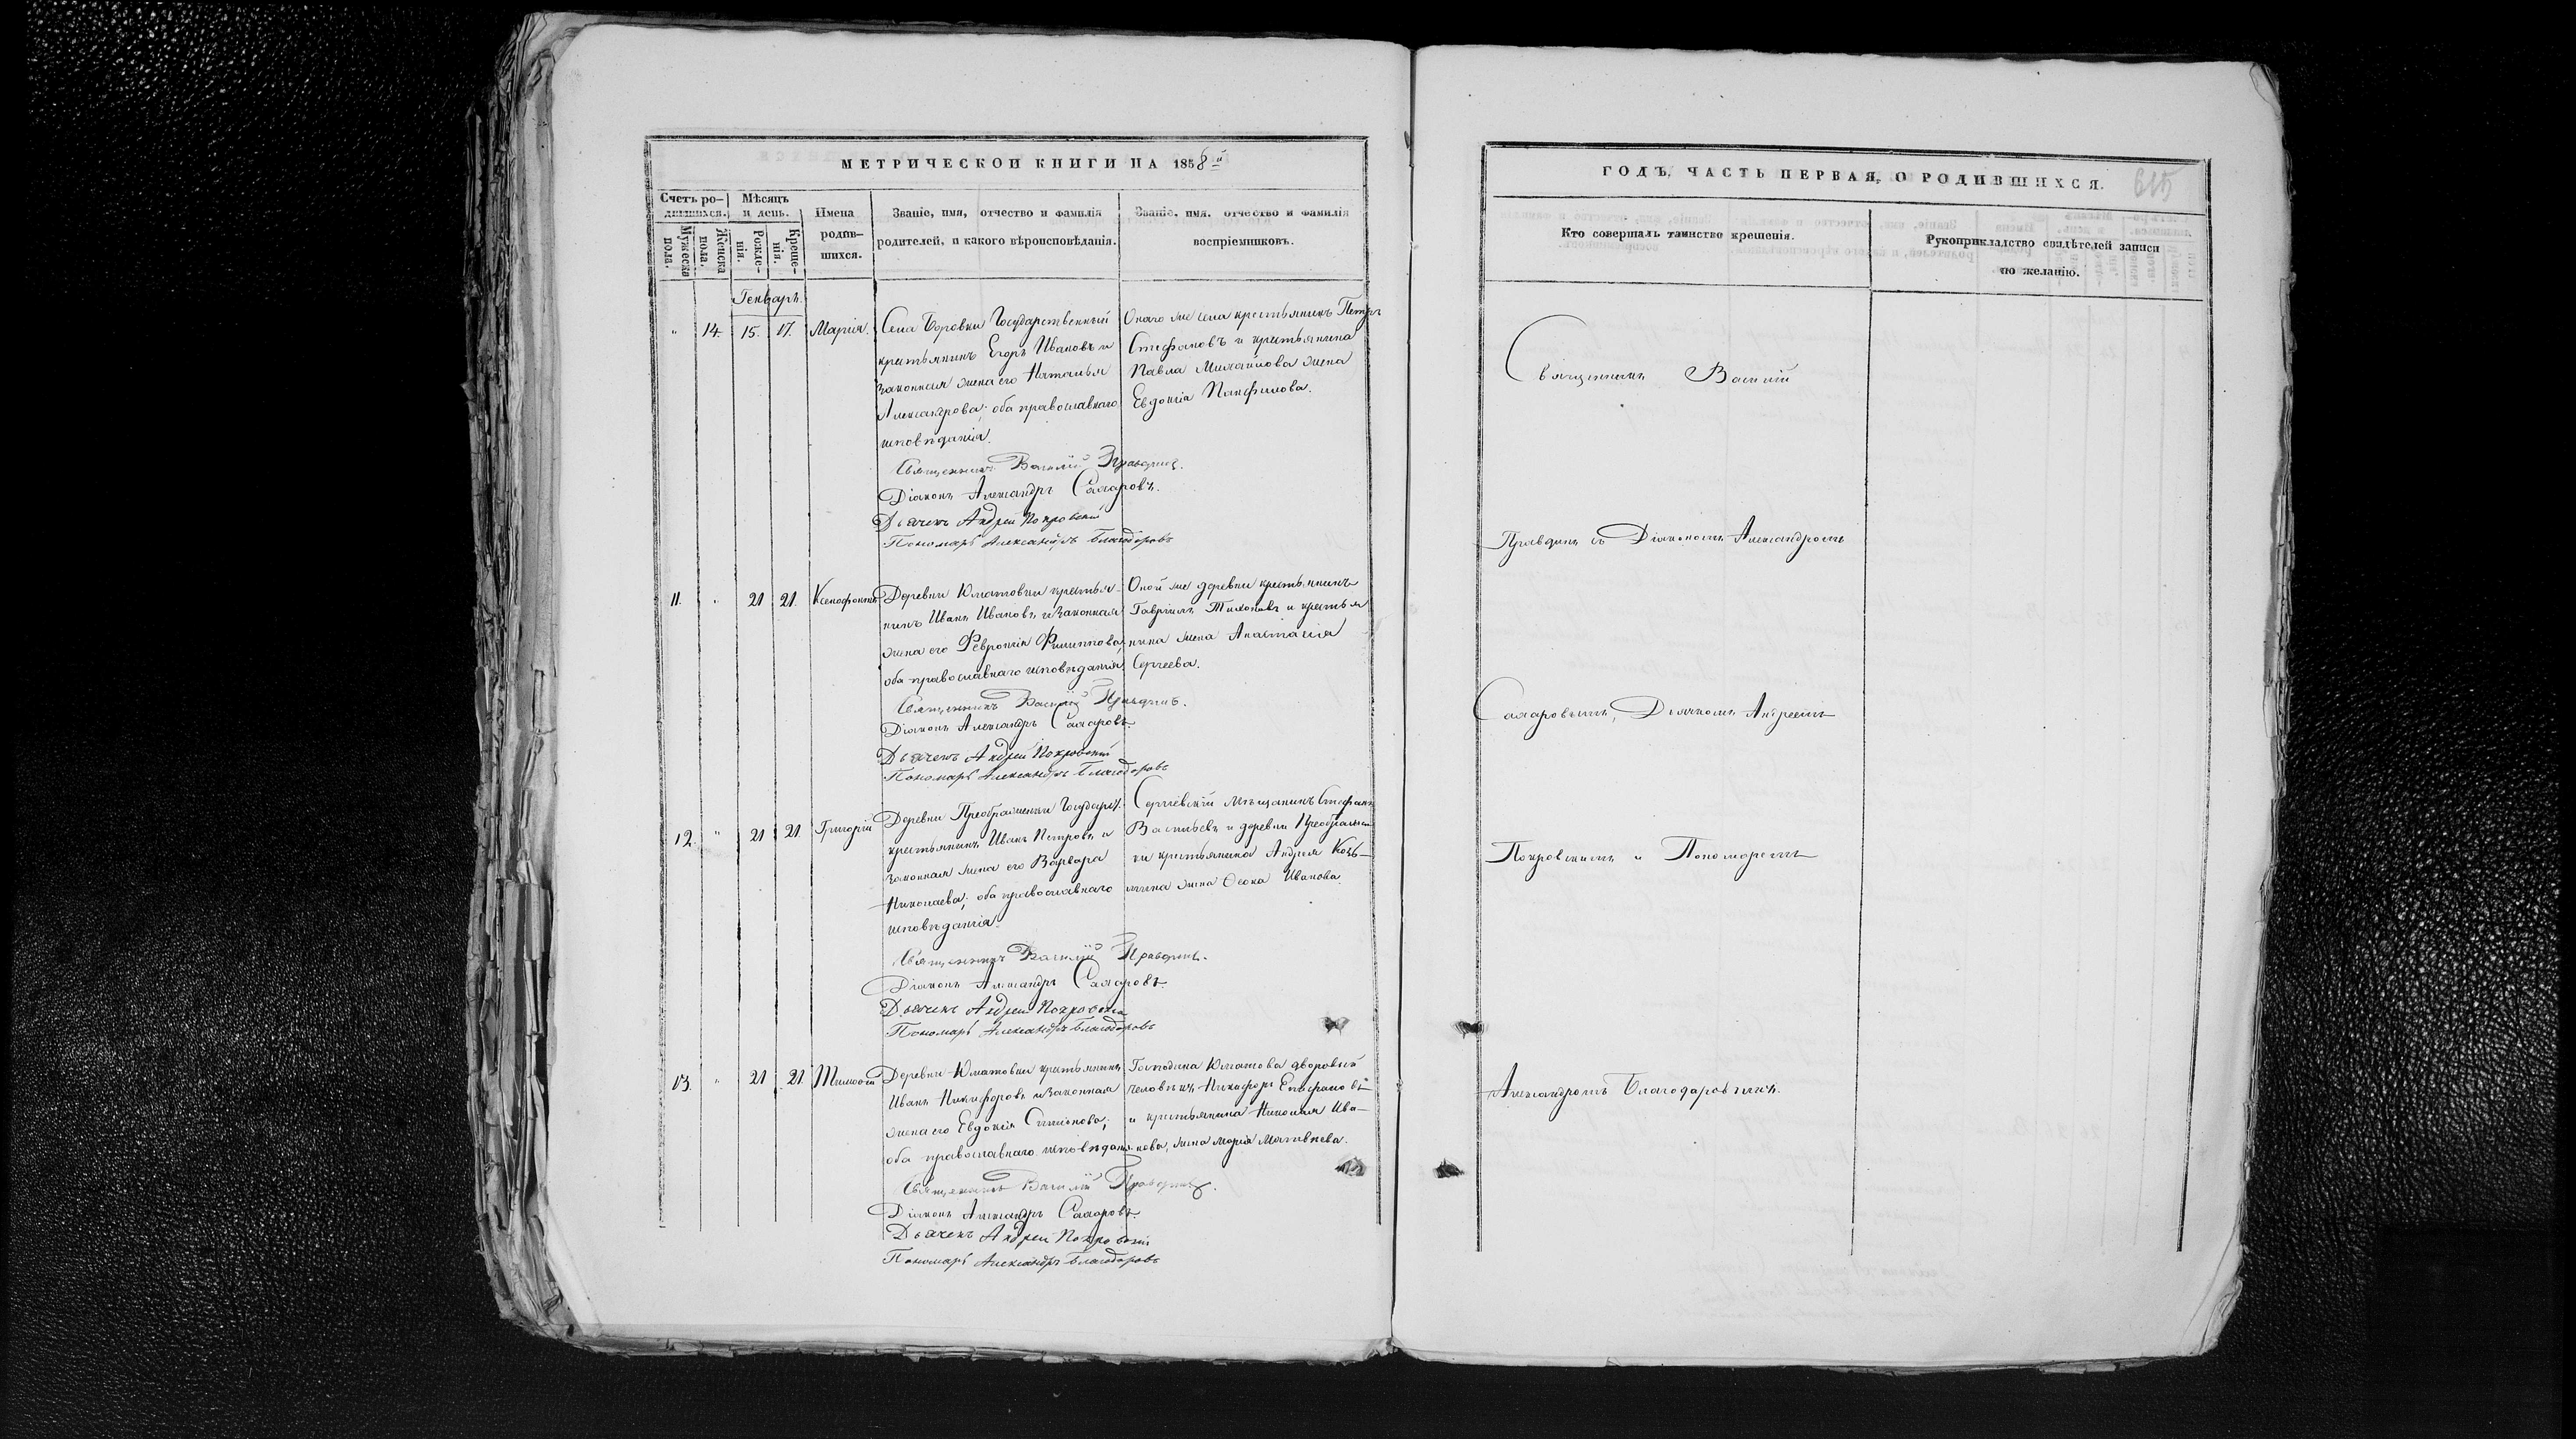 МЕТРИЧЕСКОЙ КНИГИ НА 1858й
Счетъ ро-
дившихся.
Мѣсяцъ
и день.
Мужеска
пола.
Женска
пола.
Рожде-
нія.
Креще-
нія.
Имена
родив-
шихся.
Званіе, имя, отчество и фамилія
родителей, и какого вѣроисповѣданія.
Званіе, имя, отчество и фамилія
воспріемниковъ.
Генварь.
" 14. 15. 17. Марія.
Села Боровки Государственный
крестьянинъ Егоръ Ивановъ и
законная жена его Наталья
Александрова; оба православнаго
исповѣданія.
Онаго же села крестьянинъ Петръ
Стефановъ и крестьянина
Павла Михайлова жена
Евдокія Панфилова.
Священникъ Василій Правдинъ.
Діаконъ Александръ Сахаровъ.
Дьячекъ Андрей Покровскій
Пономарь Александръ Благодаровъ
11. " 21 21. Ксенофонтъ
Деревни Юматовки крестья-
нинъ Иванъ Ивановъ и законная
жена его Февронія Филиппова;
оба православнаго исповѣданія.
Оной же деревни крестьянинъ
Гавріилъ Тихоновъ и крестья
нина жена Анастасія
Сергеева.
Священникъ Василій Правдинъ.
Діаконъ Александръ Сахаровъ.
Дьячекъ Андрей Покровскій
Пономарь Александръ Благодаровъ
12. " 21 21. Григорій
Деревни Преображенки Государст.
крестьянинъ Иванъ Петровъ и
законная жена его Варвара
Николаева; оба православнаго
исповѣданія.
Сергіевскій мѣщанинъ Стефанъ
Васильевъ и деревни Преображен
ки крестьянина Андрея Козь-
мина жена Ѳекла Иванова.
Священникъ Василій Правдинъ.
Діаконъ Александръ Сахаровъ.
Дьячекъ Андрей Покровскій
Пономарь Александръ Благодаровъ
13. " 21 21. Тимоѳей
Деревни Юматовки крестьянинъ
Иванъ Никифоровъ и законная
жена его Евдокія Симеонова;
оба православнаго исповѣданія
Господина Юматова дворовый
человѣкъ Никифоръ Епифановъ
и крестьянина Николая Ива-
нова, жена Марія Матвѣева.
Священникъ Василій Правдинъ.
Діаконъ Александръ Сахаровъ.
Дьячекъ Андрей Покровскій
Пономарь Александръ Благодаровъ
ГОДЪ, ЧАСТЬ ПЕРВАЯ, О РОДИВШИХСЯ.
615
Кто совершалъ таинство крещенія.
Рукоприкладство свидѣтелей записи
по желанію.
Священникъ Василій
Правдинъ съ Діакономъ Александромъ
Сахаровымъ, Дьячкомъ Андреемъ
Покровскимъ и Пономаремъ
Александромъ Благодаровымъ.